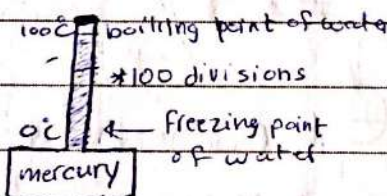 100°C boilring point of water
*100 divisions
0°C freezing point
of water
mercury